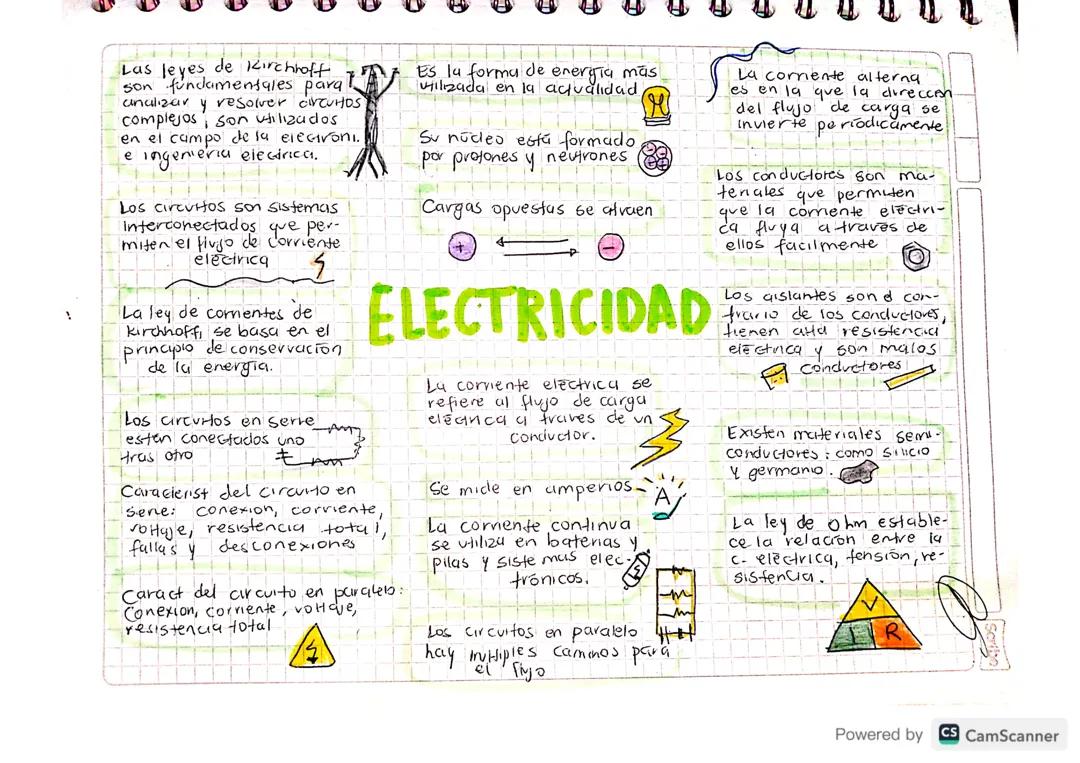 Las leyes de Kirchhoff
son fundamentales para
analizar y resolver circuitos
complejos, son utilizados
en el campo de la electroni.
e ingeniería electrica.
Los circuitos son sistemas
interconectados que per-
miten el flujo de corriente
eléctrica
La ley de corrientes de
Kirchhoff, se basa en el
principio de conservación
de la energía.
Los circuitos en serie
estén conectados uno
tras otro
Caracterist del circuito en
serie: conexion, corriente,
voltaje, resistencia total,
fallas y desconexiones
Caract del circuito en paralelo:
Conexion, corriente, voltaje,
resistencia total
Es la forma de energía más
utilizada en la actualidad
Su núcleo está formado
por protones y neutrones
Cargas opuestas se atraen
+ -
ELECTRICIDAD
La corriente eléctrica se
refiere al flujo de carga
eléctrica a traves de un
conductor.
Se mide en amperios
A
La corriente continua
se utiliza en baterias y
pilas y sistemas elec-
trónicos.
Los circuitos en paralelo
hay multiples caminos para
el flujo
La corriente alterna
es en la que la dirección
del flujo de carga se
invierte periodicamente
Los conductores son ma-
teriales que permiten
que la corriente eléctri-
ca fluya a traves de
ellos facilmente
Los aislantes son el con-
trario de los conductores,
tienen alta resistencia
eléctrica y son malos
conductores
Existen materiales semi-
conductores: como silicio
y germanio.
La ley de Ohm estable-
ce la relación entre la
c. eléctrica, tensión, re-
sistencia.
V
I R
Powered by CS CamScanner